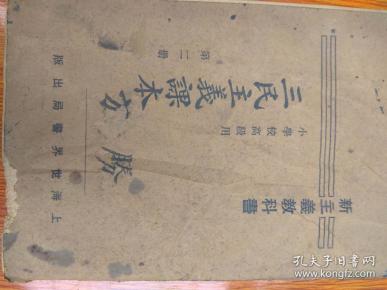 新主義教科書
小學校高級用
三民主義課本
第二册
勝
上海世界書局出版
孔夫子旧书网